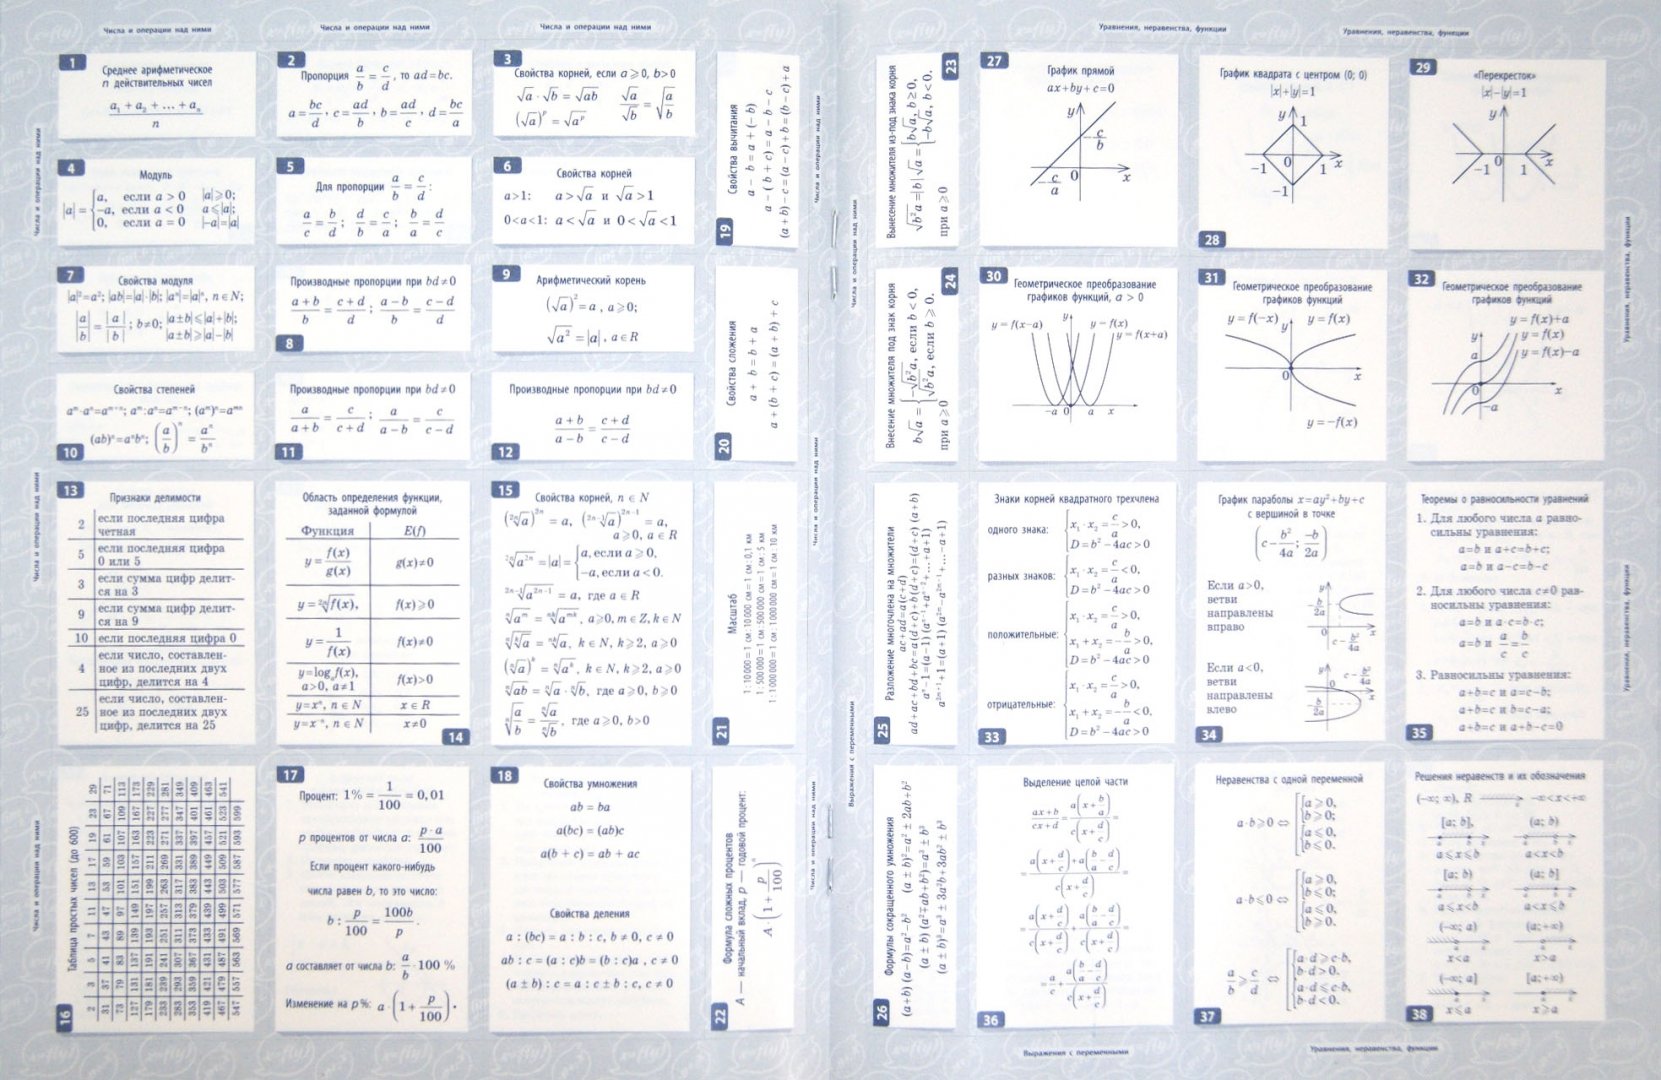 Числа и операции над ними
Числа и операции над ними
Числа и операции над ними
Уравнения, неравенства, функции
Уравнения, неравенства, функции
1
Среднее арифметическое
n действительных чисел
(a₁ + a₂ + ... + aₙ)/n
2
Пропорция a/b = c/d, то ad=bc.
a = bc/d, c = ad/b, b = ad/c, d = bc/a
3
Свойства корней, если a⩾0, b>0
√a · √b = √ab √a/√b = √(a/b)
(√a)ᵖ = √aᵖ
4
Модуль
|a| = { a, если a > 0 |a|⩾0;
−a, если a < 0 a⩽|a|;
0, если a = 0 |−a|=|a|
5
Для пропорции a/b = c/d:
a/c = b/d; d/b = c/a; b/a = d/c
6
Свойства корней
a>1: a>√a и √a>1
0<a<1: a<√a и 0<√a<1
7
Свойства модуля
|a|²=a²; |ab|=|a|·|b|; |aⁿ|=|a|ⁿ, n∈N;
|a/b| = |a|/|b|; b≠0; |a±b|⩽|a|+|b|;
|a±b|⩾|a|−|b|
Производные пропорции при bd≠0
(a+b)/b = (c+d)/d; (a−b)/b = (c−d)/d
8
9
Арифметический корень
(√a)² = a, a⩾0;
√a² = |a|, a∈R
Свойства степеней
aᵐ·aⁿ=aᵐ⁺ⁿ; aᵐ:aⁿ=aᵐ⁻ⁿ; (aᵐ)ⁿ=aᵐⁿ
(ab)ⁿ=aⁿbⁿ; (a/b)ⁿ = aⁿ/bⁿ
10
Производные пропорции при bd≠0
a/(a+b) = c/(c+d); a/(a−b) = c/(c−d)
11
Производные пропорции при bd≠0
(a+b)/(a−b) = (c+d)/(c−d)
12
13
Признаки делимости
2 если последняя цифра
четная
5 если последняя цифра
0 или 5
3 если сумма цифр делит-
ся на 3
9 если сумма цифр делит-
ся на 9
10 если последняя цифра 0
4 если число, составлен-
ное из последних двух
цифр, делится на 4
25 если число, составлен-
ное из последних двух
цифр, делится на 25
Область определения функции,
заданной формулой
Функция E(f)
y = f(x)/g(x) g(x)≠0
y = ²ⁿ√f(x), f(x)⩾0
y = 1/f(x) f(x)≠0
y=logₐf(x), f(x)>0
a>0, a≠1
y=xⁿ, n∈N x∈R
y=x⁻ⁿ, n∈N x≠0
14
15
Свойства корней, n∈N
(²ⁿ√a)²ⁿ = a, (²ⁿ⁻¹√a)²ⁿ⁻¹ = a,
a⩾0, a∈R
²ⁿ√a²ⁿ = |a| = { a, если a⩾0,
−a, если a<0.
²ⁿ⁻¹√a²ⁿ⁻¹ = a, где a∈R
ⁿ√aᵐ = ⁿᵏ√aᵐᵏ, a⩾0, m∈Z, k∈N
ⁿ√ᵏ√a = ⁿᵏ√a, k∈N, k⩾2, a⩾0
(ⁿ√a)ᵏ = ⁿ√aᵏ, k∈N, k⩾2, a⩾0
ⁿ√ab = ⁿ√a · ⁿ√b, где a⩾0, b⩾0
ⁿ√(a/b) = ⁿ√a/ⁿ√b, где a⩾0, b>0
16
Таблица простых чисел (до 600)
2 3 5 7 11 13 17 19 23 29
31 37 41 43 47 53 59 61 67 71
73 79 83 89 97 101 103 107 109 113
127 131 137 139 149 151 157 163 167 173
179 181 191 193 197 199 211 223 227 229
233 239 241 251 257 263 269 271 277 281
283 293 307 311 313 317 331 337 347 349
353 359 367 373 379 383 389 397 401 409
419 421 431 433 439 443 449 457 461 463
467 479 487 491 499 503 509 521 523 541
547 557 563 569 571 577 587 593 599
17
Процент: 1% = 1/100 = 0,01
p процентов от числа a: (p·a)/100
Если процент какого-нибудь
числа равен b, то это число:
b : p/100 = 100b/p.
a составляет от числа b: a/b · 100 %
Изменение на p%: a·(1 + p/100).
18
Свойства умножения
ab = ba
a(bc) = (ab)c
a(b + c) = ab + ac
Свойства деления
a : (bc) = a : b : c, b ≠ 0, c ≠ 0
ab : c = (a : c)b = (b : c)a , c ≠ 0
(a ± b) : c = a : c ± b : c, c ≠ 0
19
Свойства вычитания
a − b = a + (− b)
a − (b + c) = a − b − c
(a + b) − c = (a − c) + b = (b − c) + a
20
Свойства сложения
a + b = b + a
a + (b + c) = (a + b) + c
21
Масштаб
1 : 10 000 = 1 см : 10 000 см = 1 см : 0,1 км
1 : 500 000 = 1 см : 500 000 см = 1 см : 5 км
1 : 1 000 000 = 1 см : 1 000 000 см = 1 см : 10 км
22
Формула сложных процентов
A — начальный вклад, p — годовой процент:
A·(1 + p/100)ⁿ
23
Вынесение множителя из-под знака корня
√b²a = |b|√a = { b√a, b⩾0,
−b√a, b<0.
при a⩾0
24
Внесение множителя под знак корня
b√a = { −√b²a, если b < 0,
√b²a, если b ⩾ 0.
при a⩾0
25
Разложение многочлена на множители
ac+ad=a(c+d)
ad+ac+bd+bc=a(d+c)+b(d+c)=(d+c)(a+b)
aⁿ−1=(a−1)(aⁿ⁻¹+aⁿ⁻²+...+a+1)
a²ⁿ⁻¹+1=(a+1)(a²ⁿ−a²ⁿ⁻¹+...−a+1)
26
Формулы сокращенного умножения
(a+b)(a−b)=a²−b² (a ± b)²=a² ± 2ab+b²
(a ± b)(a²∓ab+b²)=a³ ± b³
(a ± b)³=a³ ± 3a²b+3ab² ± b³
27
График прямой
ax+by+c=0
y
−c/b
−c/a
0
x
График квадрата с центром (0; 0)
|x|+|y|=1
y
1
−1 0 1 x
−1
28
29
«Перекресток»
|x|−|y|=1
y
−1 0 1 x
30
Геометрическое преобразование
графиков функций, a > 0
y=f(x−a) y y=f(x)
y=f(x+a)
−a 0 a x
31
Геометрическое преобразование
графиков функций
y=f(−x) y y=f(x)
0 x
y=−f(x)
32
Геометрическое преобразование
графиков функций
y=f(x)+a
y y=f(x)
a y=f(x)−a
0 x
−a
Знаки корней квадратного трехчлена
одного знака: { x₁·x₂ = c/a >0,
D=b²−4ac>0
разных знаков: { x₁·x₂ = c/a <0,
D=b²−4ac>0
положительные: { x₁·x₂ = c/a >0,
x₁+x₂=−b/a>0,
D=b²−4ac>0
отрицательные: { x₁·x₂ = c/a >0,
x₁+x₂=−b/a<0,
D=b²−4ac>0
33
График параболы x=ay²+by+c
с вершиной в точке
(c−b²/4a; −b/2a)
Если a>0,
ветви
направлены
вправо
y
−b/2a
x
c−b²/4a
Если a<0,
ветви
направлены
влево
34
Теоремы о равносильности уравнений
1. Для любого числа a равно-
сильны уравнения:
a=b и a+c=b+c;
a=b и a−c=b−c
2. Для любого числа c≠0 рав-
носильны уравнения:
a=b и a·c=b·c;
a=b и a/c=b/c
3. Равносильны уравнения:
a+b=c и a=c−b;
a+b=c и b=c−a;
a+b=c и a+b−c=0
35
Выделение целой части
(ax+b)/(cx+d) = a(x+b/a)/c(x+d/c) =
36
Неравенства с одной переменной
a·b⩾0 ⇔ [ { a⩾0,
b⩾0;
{ a⩽0,
b⩽0.
a·b⩽0 ⇔ [ { a⩾0,
b⩽0;
{ a⩽0,
b⩾0.
a/b ⩾ c/d ⇔ [ { a·d⩾c·b,
b·d>0.
{ a·d⩽c·b,
b·d<0.
37
Решения неравенств и их обозначения
(−∞; ∞), R −∞<x<+∞
[a; b], (a; b)
a⩽x⩽b a<x<b
[a; b) (a; b]
a⩽x<b a<x⩽b
(−∞; a) (a; +∞)
x<a x>a
(−∞; a] [a; +∞)
x⩽a x⩾a
38
Числа и операции над ними
Числа и операции над ними
Числа и операции над ними
Числа и операции над ними
Числа и операции над ними
Числа и операции над ними
Числа и операции над ними
Выражения с переменными
Уравнения, неравенства, функции
Уравнения, неравенства, функции
Выражения с переменными
Уравнения, неравенства, функции